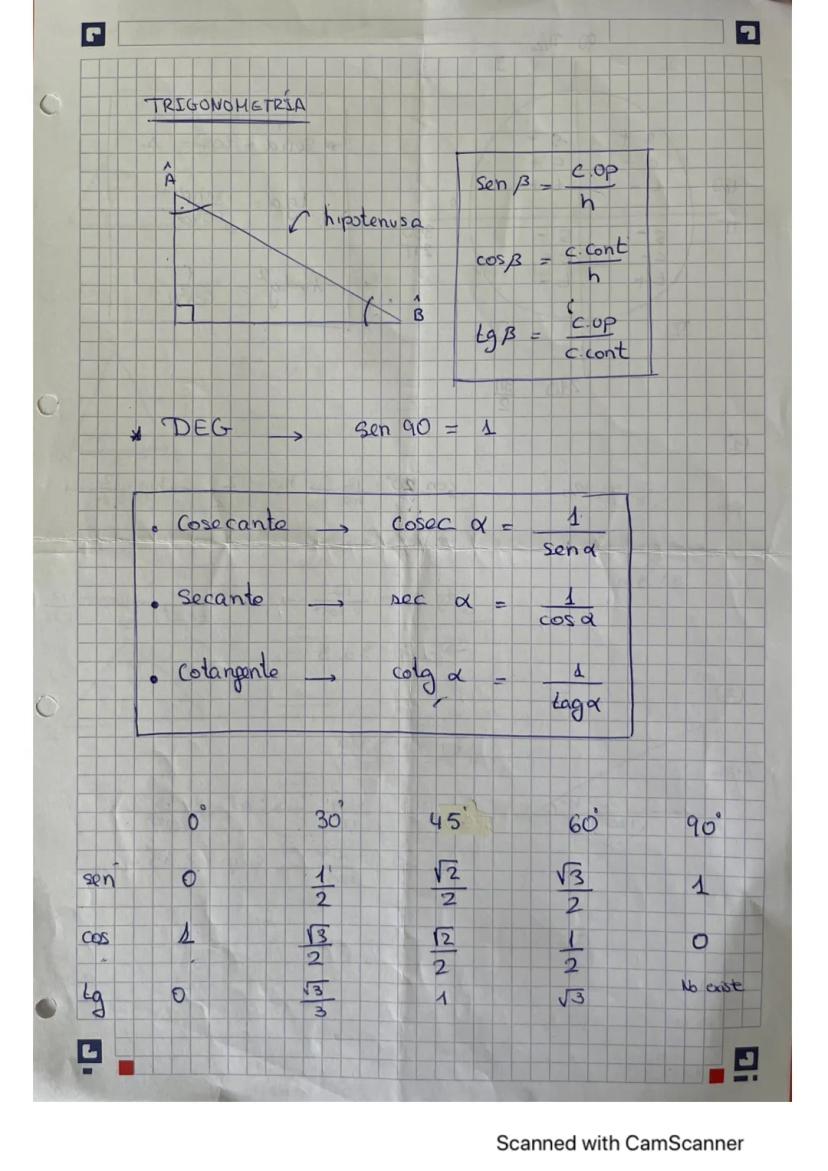 TRIGONOMETRÍA
Â
hipotenusa
B̂
sen β = c.op / h
cos β = c.cont / h
tg β = c.op / c.cont
* DEG → sen 90 = 1
• Cosecante → cosec α = 1 / sen α
• Secante → sec α = 1 / cos α
• Cotangente → cotg α = 1 / tag α
0° 30° 45° 60° 90°
sen 0 1/2 √2/2 √3/2 1
cos 1 √3/2 √2/2 1/2 0
tg 0 √3/3 1 √3 No existe
Scanned with CamScanner